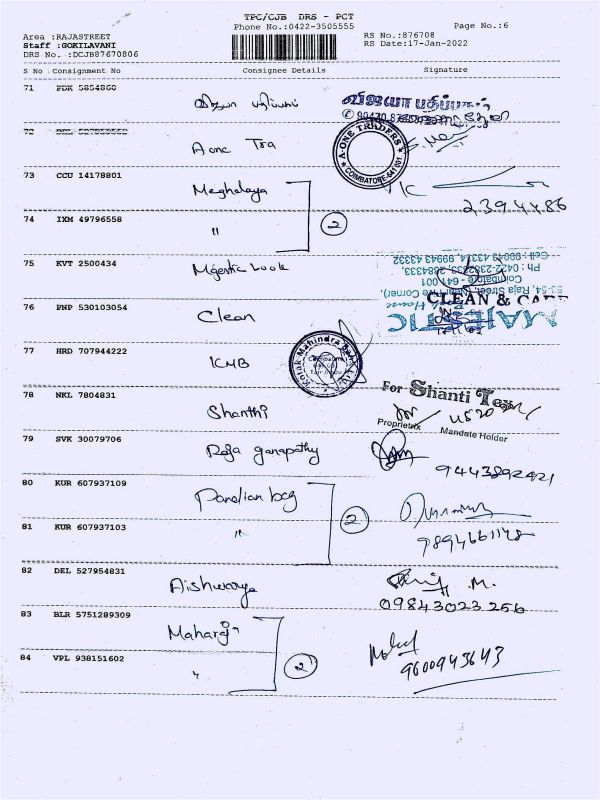 TPC/CJB DRS - PCT
Phone No.:0422-3505555 Page No.:6
Area :RAJASTREET RS No.:876708
Staff :GOKILAVANI RS Date:17-Jan-2022
DRS No. :DCJB87670806
S No Consignment No Consignee Details Signature
71 PDK 5854860
விஜயா பதிப்பகம் விஜயா பதிப்பகம்
72
A one Tra A-ONE TRADERS COIMBATORE-641 001
73 CCU 14178801
Meghalaya
2394486
74 IXM 49796558
" 2
75 KVT 2500434
Majestic book
Cell : 99943 43374, 99943 43332
Coimbatore - 641 001
53-54, Raja Street,
MAJESTIC
Book House
76 PNP 530103054
Clean CLEAN &
77 HRD 707944222
KMB Kotak Mahindra Bank
78 NKL 7804831
Shanthi For Shanti Tex
Proprietrix Mandate Holder
79 SVK 30079706
Raja ganapathy 9443892421
80 KUR 607937109
Pandian bag 2
81 KUR 607937103
" 9894661148
82 DEL 527954831
Aishwarya M.
09843023256
83 BLR 5751289309
Maharaja
84 VPL 938151602
" 2 9600943643